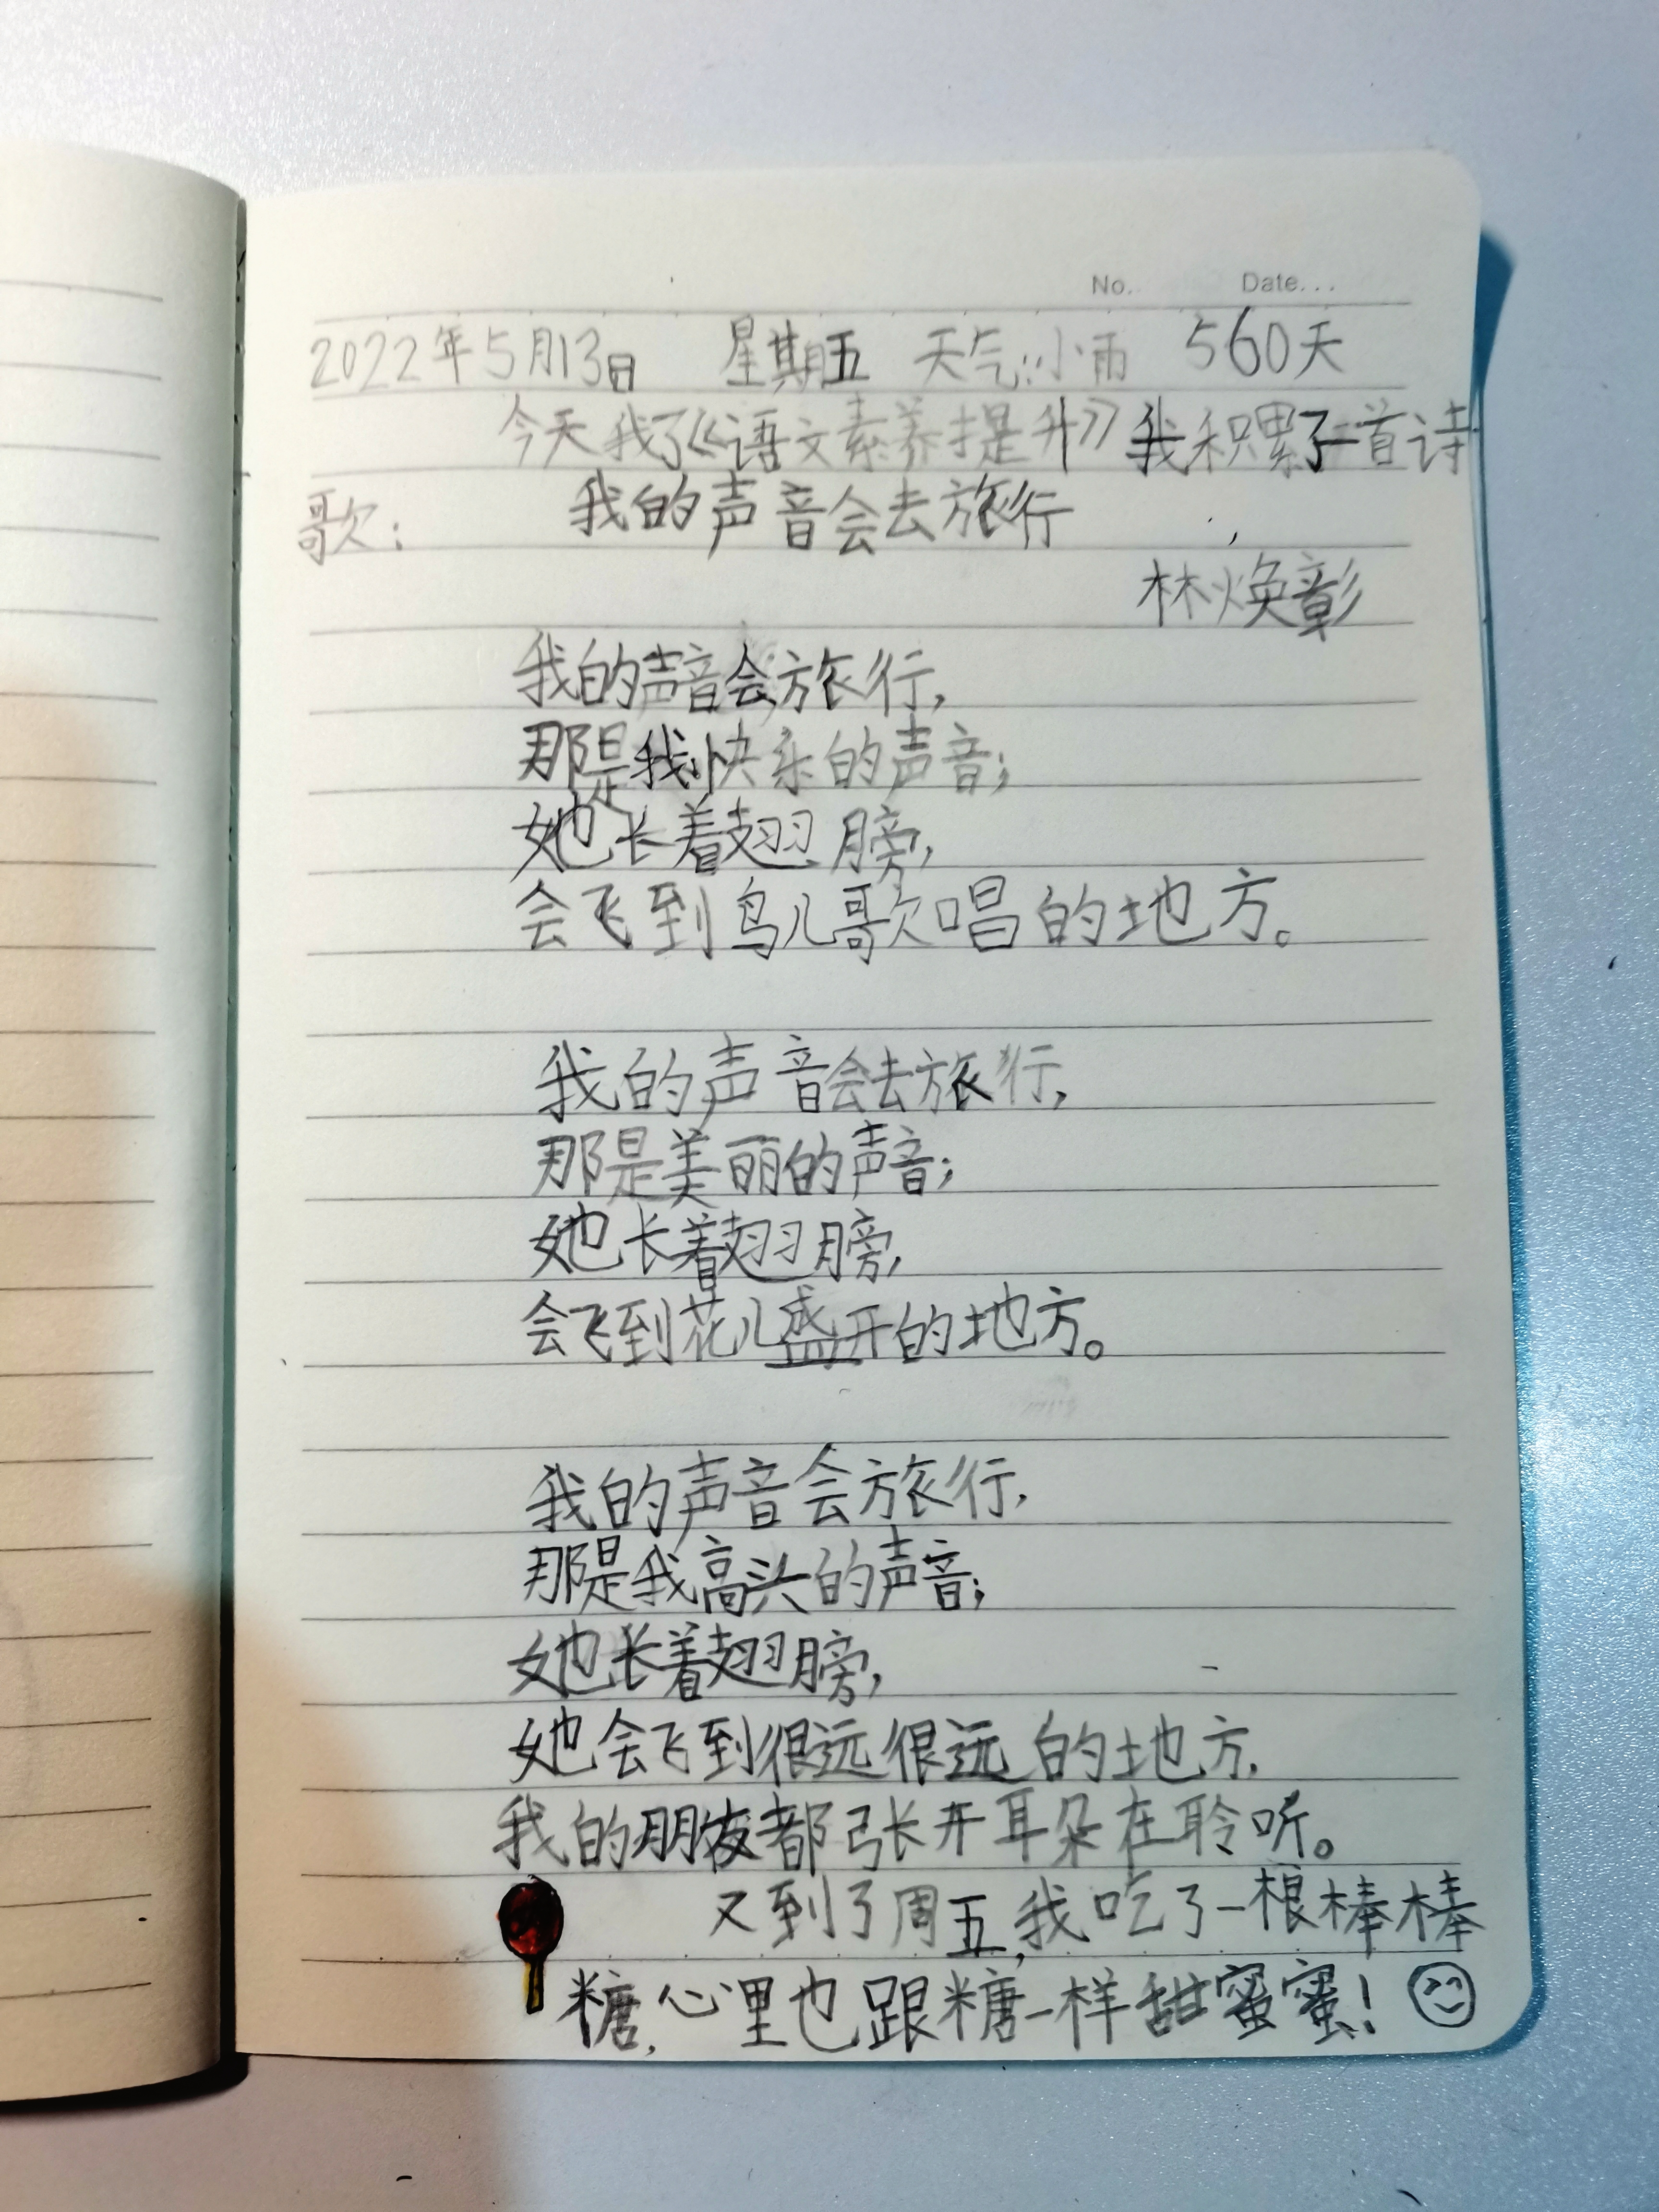 No. Date...
2022年5月13日 星期五 天气:小雨 560天
今天我了《语文素养提升》我积累了一首诗
歌: 我的声音会去旅行
林焕彰
我的声音会旅行,
那是我快乐的声音;
她长着翅膀,
会飞到鸟儿歌唱的地方。
我的声音会去旅行,
那是美丽的声音;
她长着翅膀,
会飞到花儿盛开的地方。
我的声音会旅行,
那是我高兴的声音;
她长着翅膀,
她会飞到很远很远的地方,
我的朋友都张开耳朵在聆听。
又到了周五,我吃了一根棒棒
糖,心里也跟糖一样甜蜜蜜!